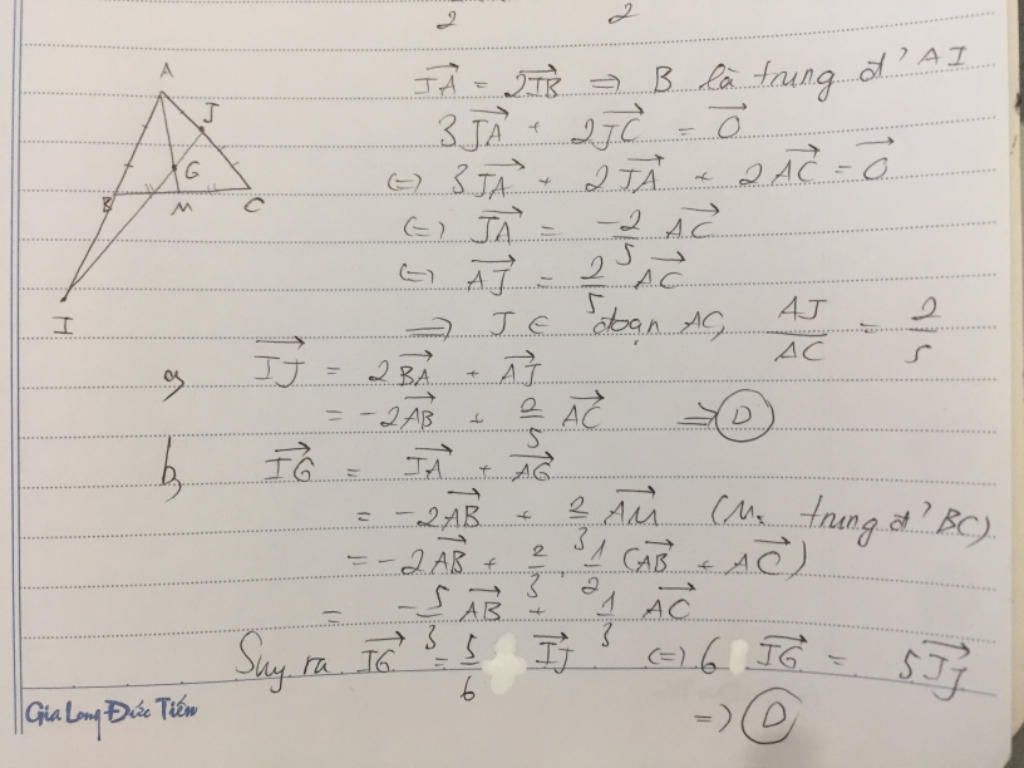 2 2
A
J
G
B M C
I
$\overrightarrow{IA} = 2\overrightarrow{IB}$ ⇒ B là trung đ' AI
$3\overrightarrow{JA} + 2\overrightarrow{JC} = \overrightarrow{O}$
(=) $3\overrightarrow{JA} + 2\overrightarrow{JA} + 2\overrightarrow{AC} = \overrightarrow{O}$
(=) $\overrightarrow{JA} = \frac{-2}{5}\overrightarrow{AC}$
(=) $\overrightarrow{AJ} = \frac{2}{5}\overrightarrow{AC}$
=> J ∈ đoạn AC, $\frac{AJ}{AC} = \frac{2}{5}$
a) $\overrightarrow{IJ} = 2\overrightarrow{BA} + \overrightarrow{AJ}$
$= -2\overrightarrow{AB} + \frac{2}{5}\overrightarrow{AC}$ => D
b) $\overrightarrow{IG} = \overrightarrow{IA} + \overrightarrow{AG}$
$= -2\overrightarrow{AB} + \frac{2}{3}\overrightarrow{AM}$ (M: trung đ' BC)
$= -2\overrightarrow{AB} + \frac{2}{3}.\frac{1}{2}(\overrightarrow{AB} + \overrightarrow{AC})$
$= -\frac{5}{3}\overrightarrow{AB} + \frac{1}{3}\overrightarrow{AC}$
Suy ra $\overrightarrow{IG} = \frac{5}{6}\overrightarrow{IJ}$ (=) $6\overrightarrow{IG} = 5\overrightarrow{IJ}$
=> D
Gia Long Đức Tiến